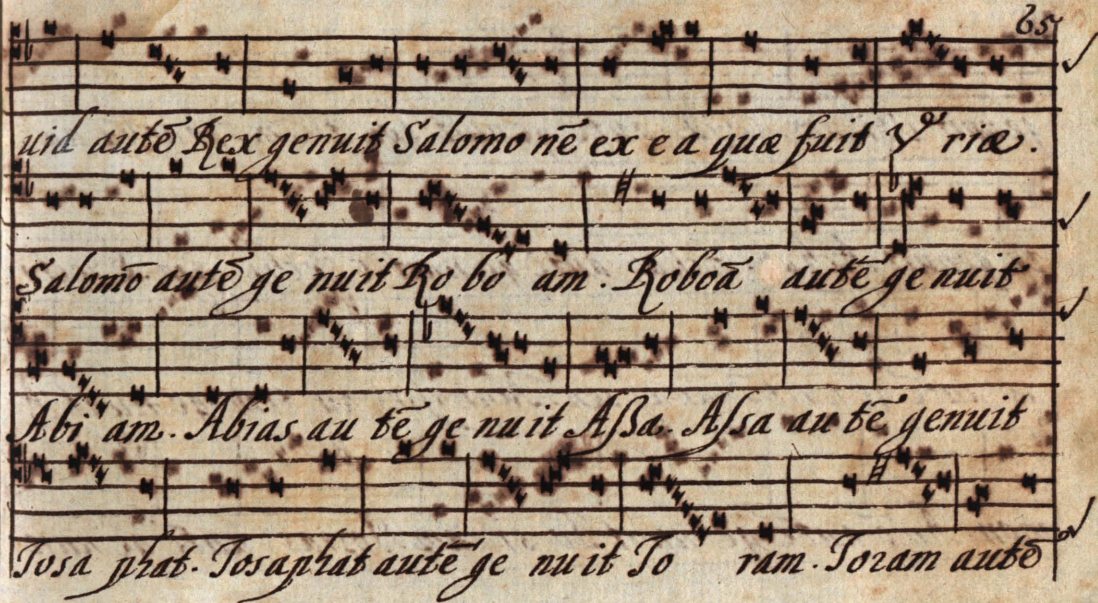 65
uid autē Rex genuit Salomo nē ex e a quæ fuit V riæ.
Salomō autē ge nuit Ro bo am. Roboā autē ge nuit
Abi am. Abias au tē ge nu it Aßa. Aſsa au tē genuit
Iosa phat. Iosaphat autē ge nu it Io ram. Ioram autē